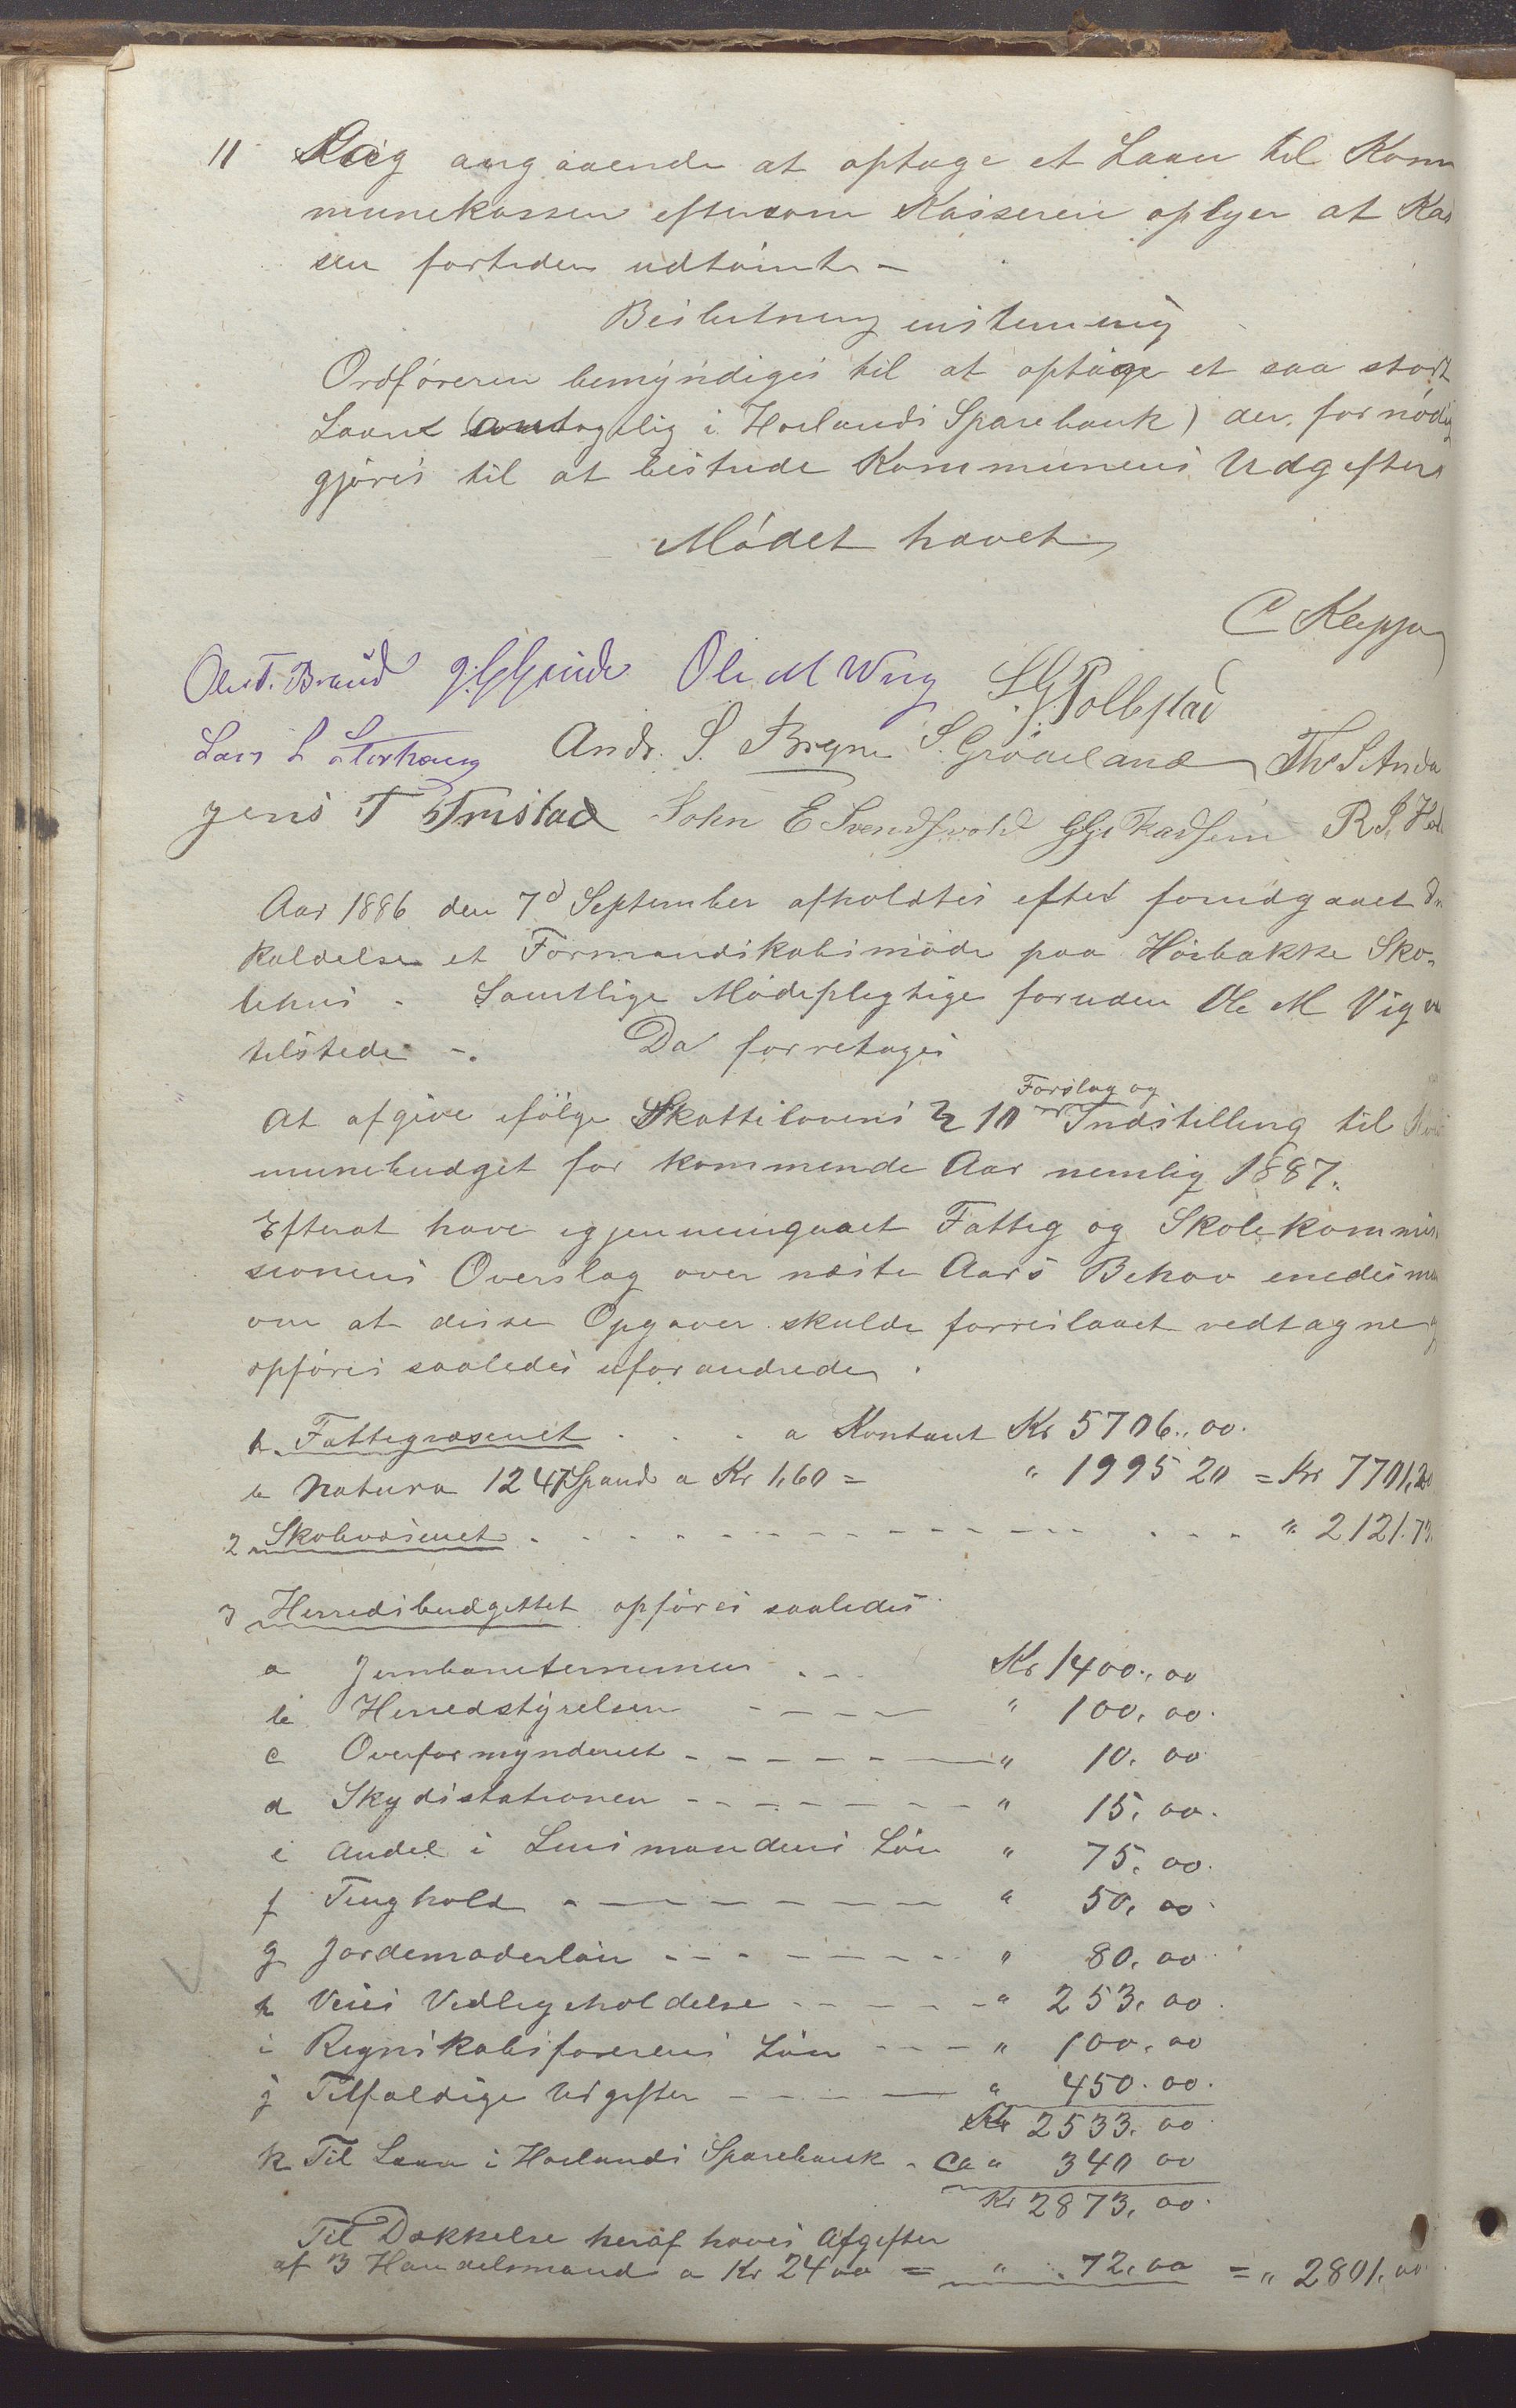 11 Sag angaaende at optage et Laan til Kom
munekassen eftersom Kassereren oplyser at Kas
sen fortiden udtømt –
Beslutning enstemmig
Ordføreren bemyndiges til at optage et saa stort
Laan (antagelig i Høilands Sparebank) der fornødig
gjøres til at bestride Kommunens Udgifter
Mødet hævet
C Kleppa
Ole T. Braud Ole M Wiig S. G. Pollestad
Lars L Storhaug Andr. S. Bryne S. Grødeland Ths S Anda
Jens T Tristad John E Svendsvold R S.
Aar 1886 den 7d September afholdtes efter forudgaaet
kaldelse et Formandskabsmøde paa Høibakke Sko-
lehus – Samtlige Mødepligtige foruden Ole M Vig
tilstede –. Da forretoges
At afgive ifølge Skattelovens § 10 Forslag og Indstilling til
munebudget for kommende Aar nemlig 1887.
Efterat have igjennemgaaet Fattig og Skolekommis
sionens Overslag over næste Aars Behov enedes man
om at disse Opgaver skulde forreslaaet vedtagne
opføres saaledes uforandrede.
1. Fattigvæsenet . . . a Kontant Kr 5706.,00.
b Natura 1247 Spand a Kr 1,60 = " 1995 20 = Kr 7701,20
2 Skolevæsenet . - - - - - - - - " 2121.73.
3 Herredsbudgettet opføres saaledes
a Jernbaneterminen . - - Kr 1400.,00
b Herredstyrelsen - - - - " 100,00.
c Overformynderiet - - - - - " 10,00
d Skydsstationen - - - - - - " 15,00.
e Andel i Lensmandens Løn " 75,00.
f Tinghold - - - - - - " 50,00.
g Jordemoderløn - - - - - - " 80,00
h Veies Vedligeholdelse - - - - " 253,00.
i Regnskabsførerens Løn - - - " 100,00
j Tilfældige Udgifter - - - - " 450.00.
Kr 2533,00
k Til Laan i Høilands Sparebank - ca " 340 00
Kr 2873,00.
Til Dækkelse heraf haves Afgifter
af 3 Handelsmænd a Kr 24 00 = " 72,00 = " 2801,00.